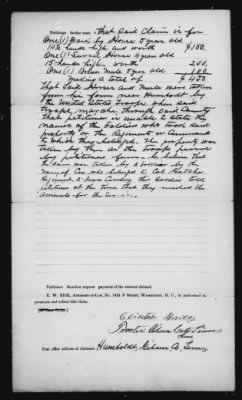 Petitioner further states: That said Claim is for
One (1) Dark Bay Horse 5 year old
14½ hands high and worth $150.
One (1) Sorrel Horse 4 year old
15 hands high worth 200.
One (1) Brown Mule 8 year old 100
making a total of $450
that said Horses and Mule were taken
from his farm near Humboldt by
the United States Troops, when said
Troops, marched through said County
that petitioner is unable to state the
names of the Soldiers who took said
property or the Regiment or Command
to which they belonged. The property was
taken by them as the troops passed
by petitioners farm. he believes that
the claim was taken by a Soldier by the
name of Cox who belonged to Col. Hatchs
Regiment 2 Iowa Cavalry this Soldier told
petitioner at the time that they needed the
animals for the Service.
Petitioner therefore requests payment of the amount claimed.
Attorney-at-Law, No. F Street, Washington, D. C., is authorized to
prosecute and collect this claim.
Post office address of claimant: Humboldt, Gibson Co. Tenn.